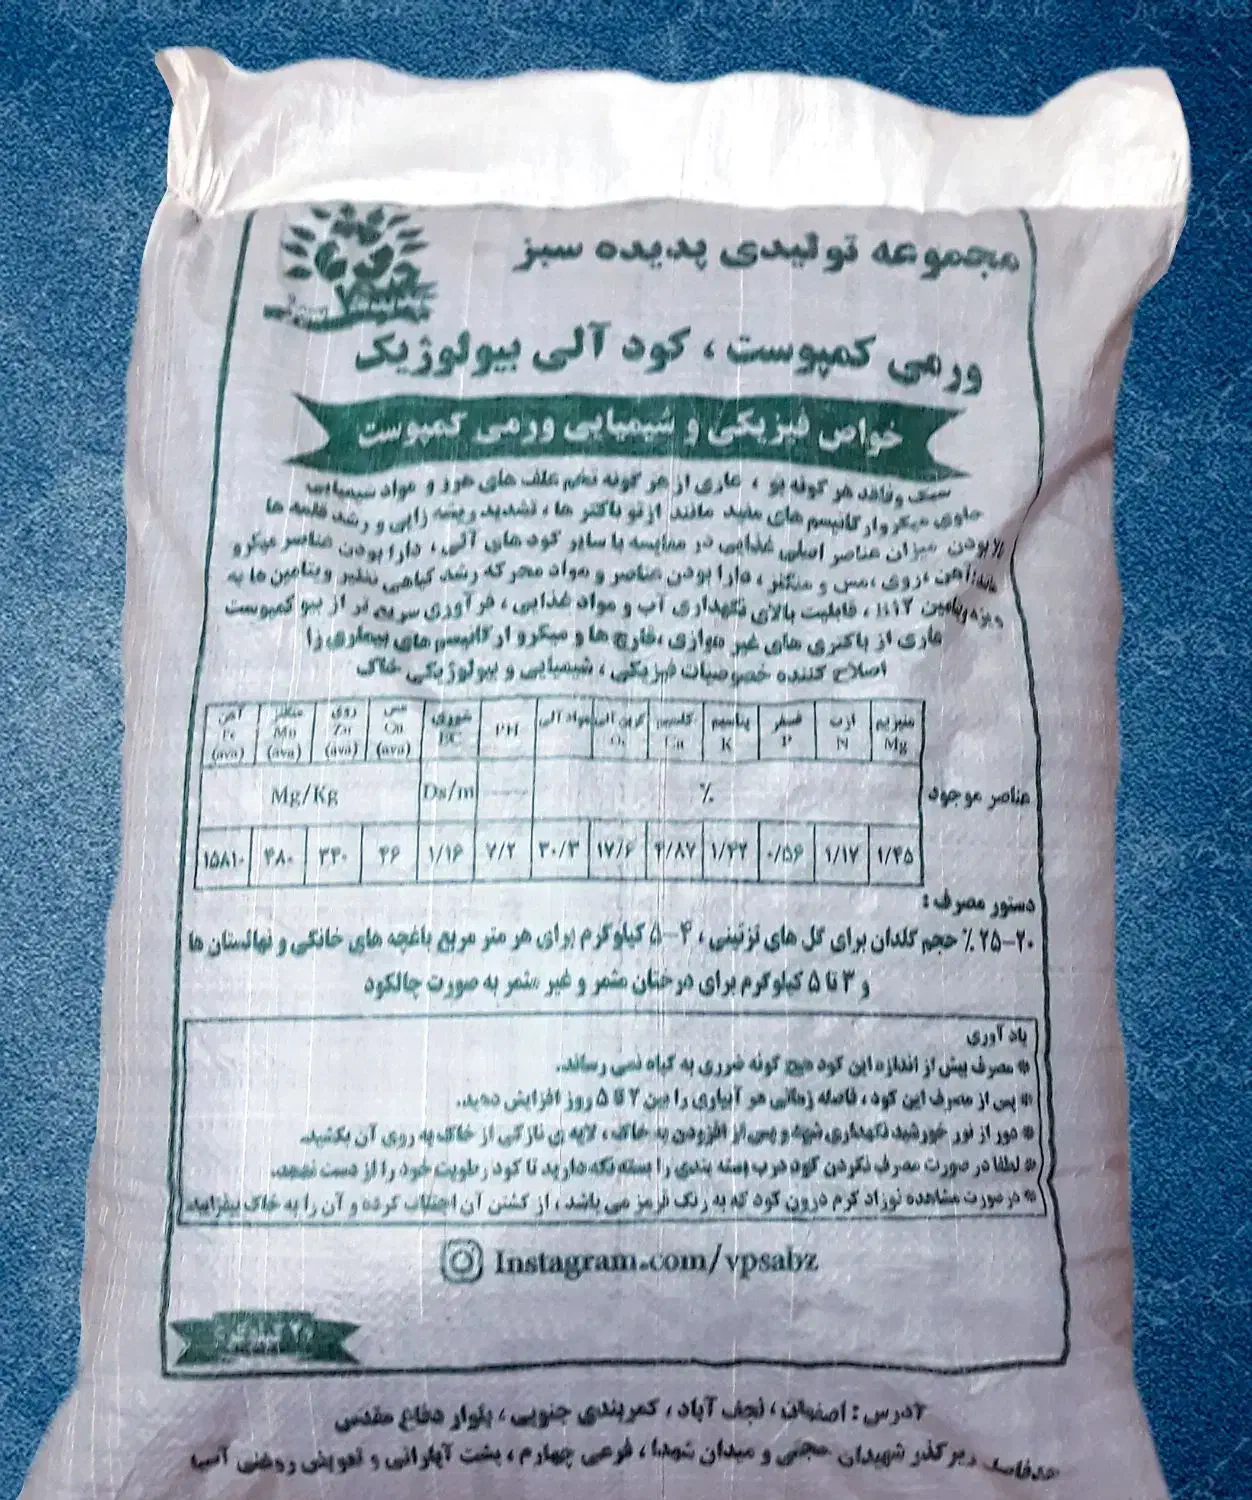 مجموعه تولیدی پدیده سبز
ورمی کمپوست ، کود آلی بیولوژیک
خواص فیزیکی و شیمیایی ورمی کمپوست
سبک وفاقد هر گونه بو ، عاری از هر گونه تخم علف های هرز و مواد شیمیایی
حاوی میکروارگانیسم های مفید مانند ازتو باکتر ها ، تشدید ریشه زایی و رشد قلمه ها
بالابودن میزان عناصر اصلی غذایی در مقایسه با سایر کود های آلی ، دارا بودن عناصر میکرو
مانند:آهن ،روی ،مس و منگنز ، دارا بودن عناصر و مواد محرکه رشد گیاهی نظیر ویتامین ها به
ویژه ویتامین B12 ، قابلیت بالای نگهداری آب و مواد غذایی ، فرآوری سریع تر از بیو کمپوست
عاری از باکتری های غیر هوازی ،قارچ ها و میکرو ارگانیسم های بیماری زا
اصلاح کننده خصوصیات فیزیکی ، شیمیایی و بیولوژیکی خاک
منیزیم ازت فسفر پتاسیم کلسیم کربن آلی مواد آلی PH شوری مس روی منگنز آهن
Mg N P K Ca EC Cu Zn Mn Fe
(ava) (ava) (ava) (ava)
عناصر موجود % Ds/m Mg/Kg
۱/۴۵ ۱/۱۷ ۰/۵۶ ۱/۲۲ ۴/۸۷ ۱۷/۶ ۳۰/۳ ۷/۲ ۱/۱۶ ۴۶ ۳۳۰ ۴۸۰ ۱۵۸۱۰
دستور مصرف :
۲۰-۲۵ % حجم گلدان برای گل های تزئینی ، ۴-۵ کیلوگرم برای هر متر مربع باغچه های خانگی و نهالستان ها
و ۳ تا ۵ کیلوگرم برای درختان مثمر و غیر مثمر به صورت چالکود
یاد آوری
* مصرف بیش از اندازه این کود هیچ گونه ضرری به گیاه نمی رساند.
* پس از مصرف این کود ، فاصله زمانی هر آبیاری را بین ۲ تا ۵ روز افزایش دهید.
* دور از نور خورشید نگهداری شود و پس از افزودن به خاک ، لایه ی نازکی از خاک به روی آن بکشید.
* لطفا در صورت مصرف نکردن کود درب بسته بندی را بسته نگه دارید تا کود رطوبت خود را از دست ندهد.
* در صورت مشاهده نوزاد کرم درون کود که به رنگ قرمز می باشد ، از کشتن آن اجتناب کرده و آن را به خاک بیفزایید.
Instagram.com/vpsabz
۲۰ کیلوگرم
آدرس : اصفهان ، نجف آباد ، کمربندی جنوبی ، بلوار دفاع مقدس
حدفاصل زیرگذر شهیدان حججی و میدان شهدا ، فرعی چهارم ، پشت آپاراتی و تعویض روغنی آسیا